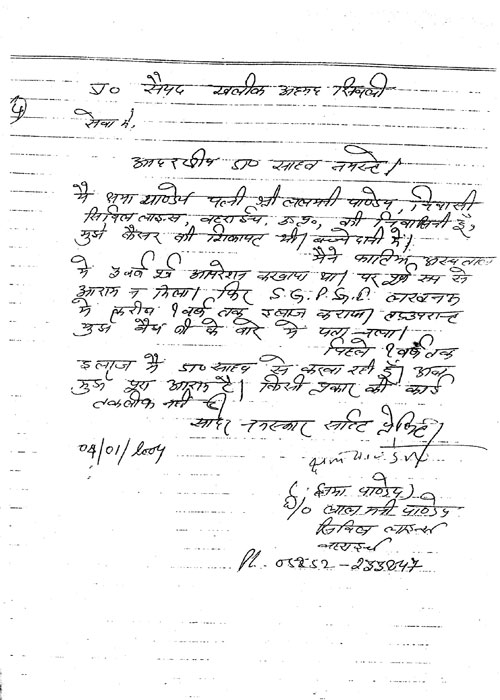 डा० सैयद खलीक अहमद
सेवा में,
आदरणीय डा० साहब नमस्ते।
मैं क्षमा पाण्डेय पत्नी श्री लालमनी पाण्डेय, निवासी
सिविल लाइन्स, बहराईच उ.प्र., की निवासिनी हूँ,
मुझे कैंसर की शिकायत थी। बच्चेदानी में।
मैंने फातिमा अस्पताल
में 3 वर्ष पूर्व आपरेशन करवाया था। पर पूर्ण रूप से
आराम न मिला। फिर S.G.P.G.I. लखनऊ
में करीब 1 वर्ष तक इलाज कराया। तदउपरान्त
मुझे के बारे में पता चला।
पिछले 1 वर्ष तक
इलाज मैं डा० साहब से करवा रही हूँ। अब
मुझे पूरा आराम है। किसी प्रकार की कोई
तकलीफ नहीं है।
सादर नमस्कार सहित प्रेषित।
04/01/2004
(क्षमा पाण्डेय)
W/o लाल मनी पाण्डेय
सिविल लाइन्स
बहराईच
Ph. 05252-233847